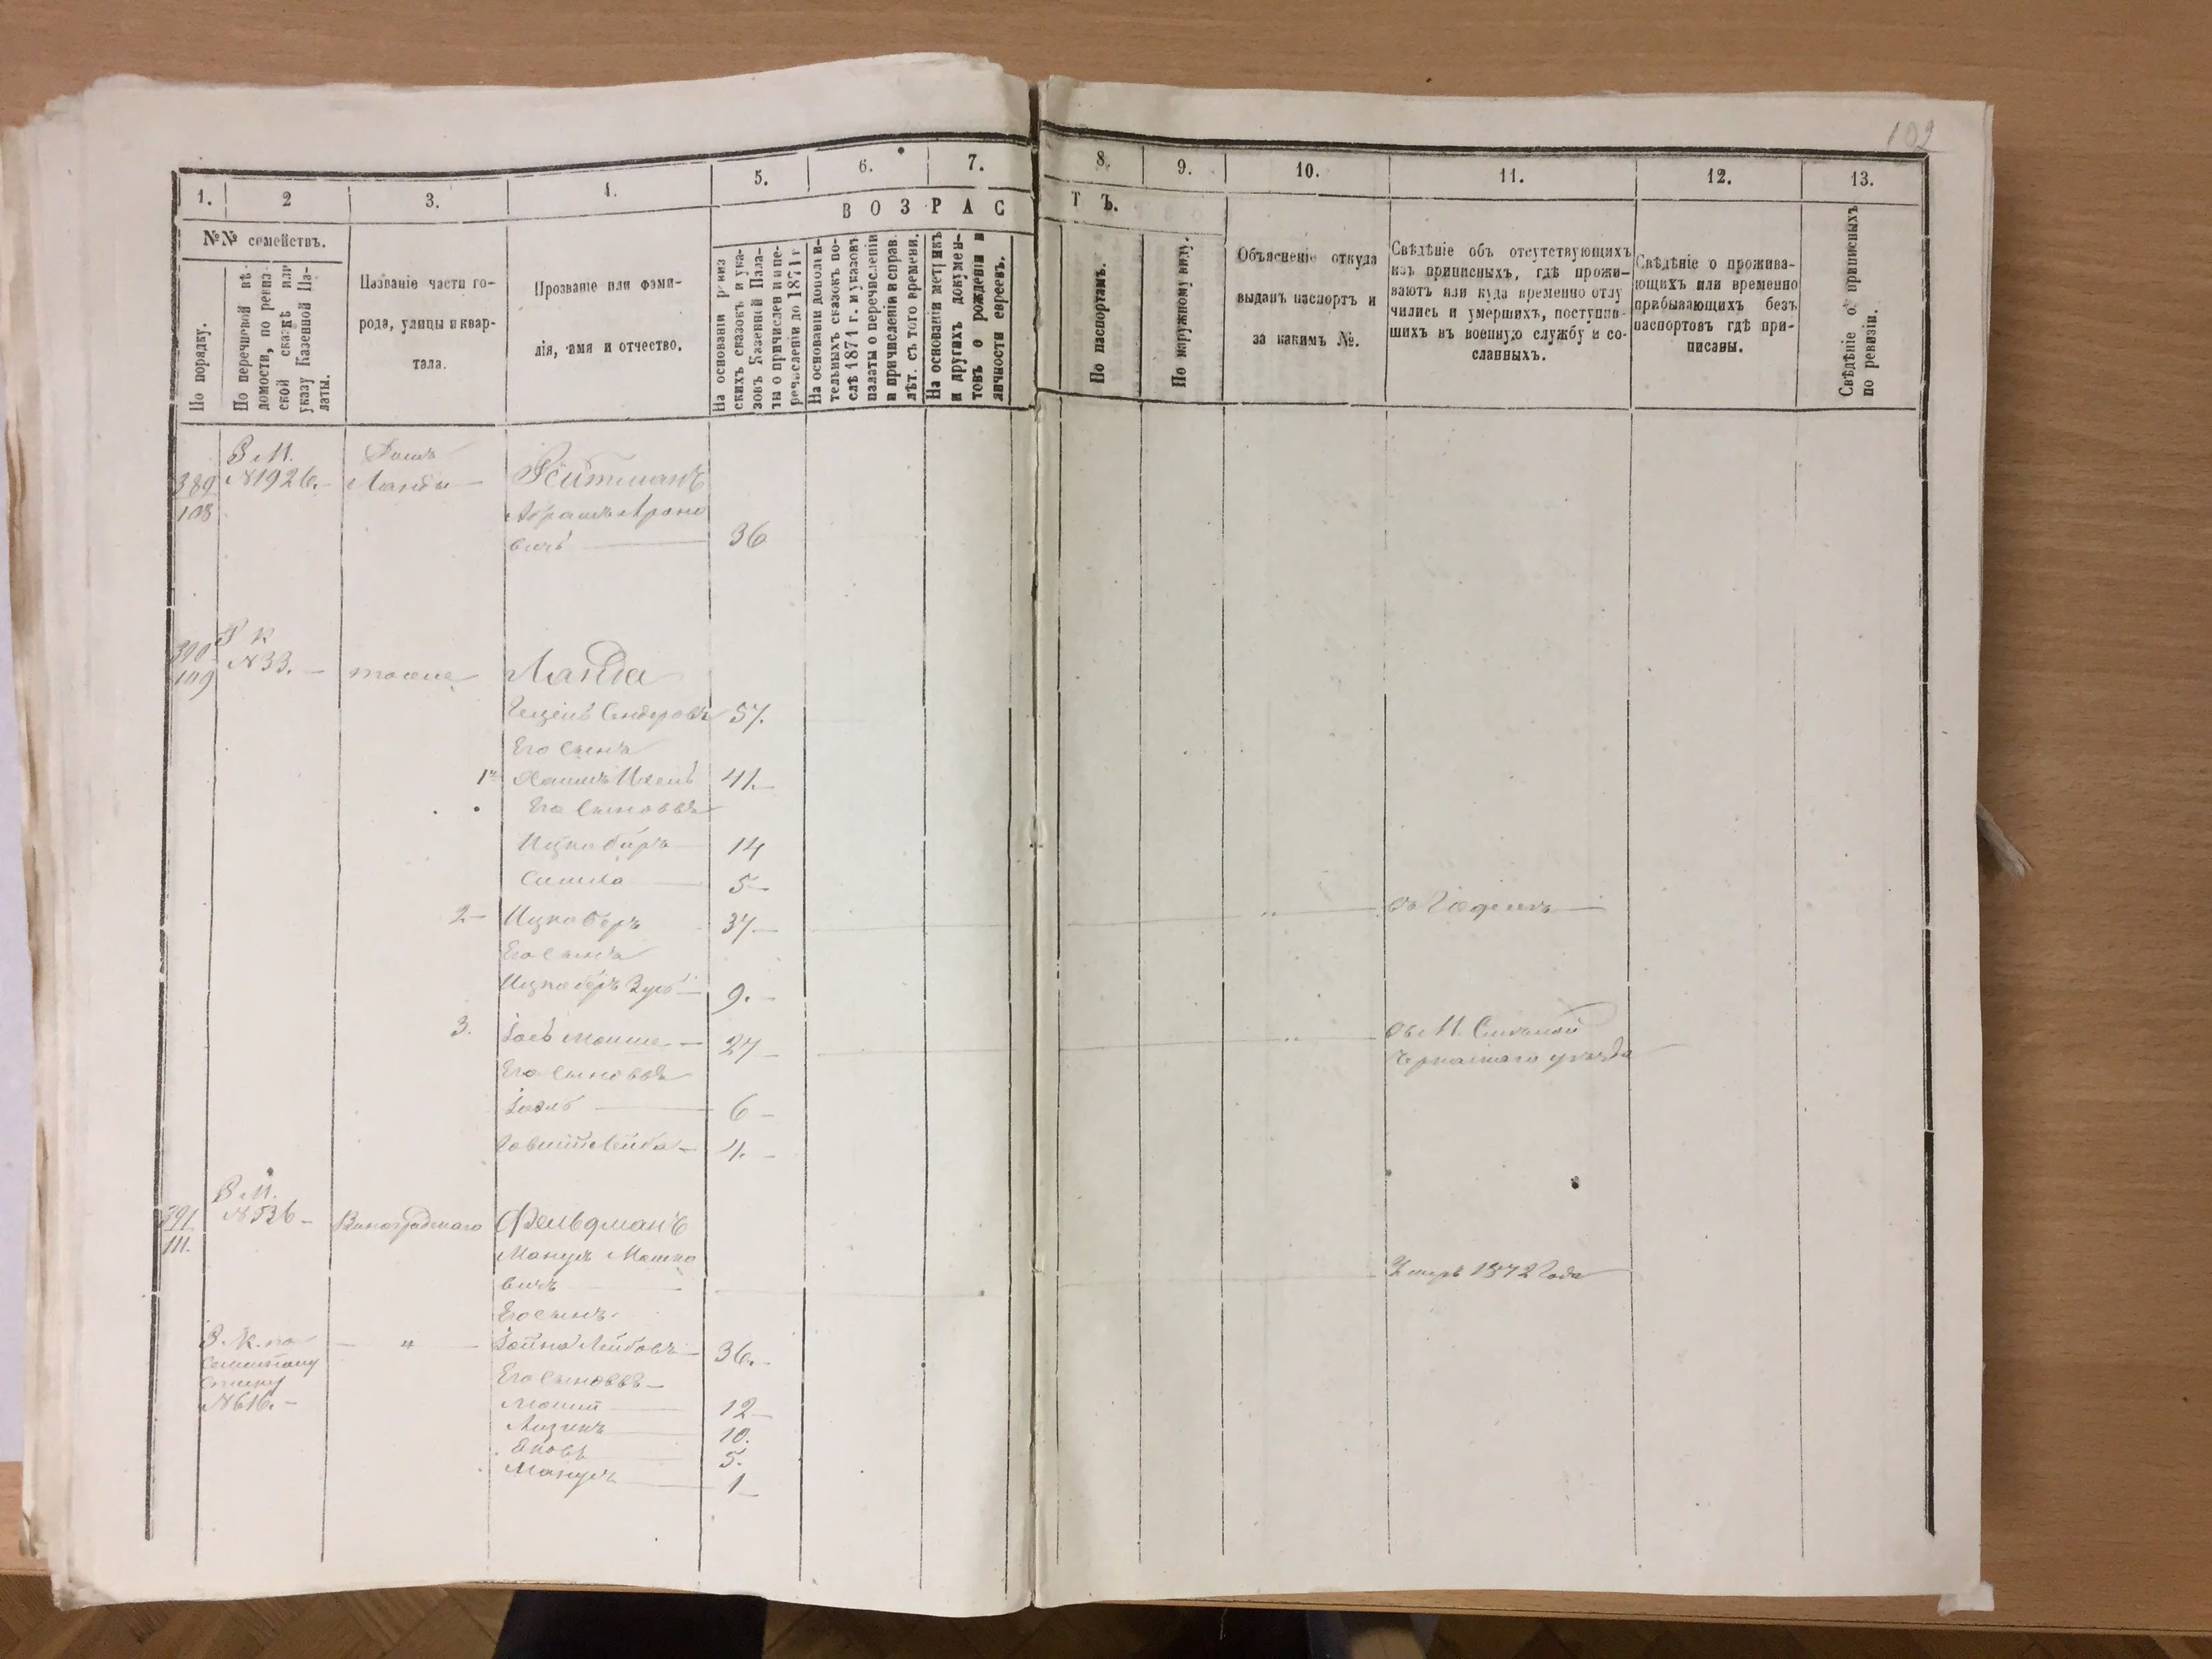 102
1.
2
3.
4.
5.
6.
7.
8.
9.
10.
11.
12.
13.
№№ семействъ.
В О З Р А С
Т Ъ.
По порядку.
По перечневой вѣ-
домости, по ревиз-
ской сказкѣ или
указу Казенной Па-
латы.
Названіе части го-
рода, улицы и квар-
тала.
Прозваніе или фами-
лія, имя и отчество.
На основаніи ревиз
скихъ сказокъ и ука-
зовъ Казенной Пала-
ты о причислен и и пе-
речислени до 1871 г
На основаніи дополни-
тельныхъ сказокъ по-
слѣ 1871 г. и указовъ
палаты о перечисленіи
и причисленіи и справ.
лѣт. съ того времени.
На основаніи метрикъ
и другихъ докумен-
товъ о рожденіи и
личности евреевъ.
По паспортамъ.
По наружному виду.
Объясненіе откуда
выданъ паспортъ и
за какимъ №.
Свѣдѣніе объ отсутствующихъ
изъ приписныхъ, гдѣ прожи-
ваютъ или куда временно отлу
чились и умершихъ, поступив-
шихъ въ военную службу и со-
сланныхъ.
Свѣдѣніе о прожива-
ющихъ или временно
прибывающихъ безъ
паспортовъ гдѣ при-
писаны.
Свѣдѣніе о приписныхъ
по ревизіи.
389
108
В М.
N1926.-
Домъ
Ланды —
Рейтманъ
Абрамъ Ароно
вичъ — 36
390
109
Р к
N33. —
тоже
Ланда
Сендеровъ 57.
Его сынъ
1й 41.—
Его Сыновья
Ицко Беръ 14
Симха — 5—
2— Ицко Беръ 37.—
Его сынъ
Ицко беръ 9.—
3. Іось Мошке — 27 —
въ М.
Черкаскаго уѣзда
Его сыновья
Іозль — 6 —
Лейба — 4. —
391
111.
В М.
N 526 —
Виноградскаго
Фельдманъ
Манусъ Мошко
вичъ —
Умеръ 1872 года
Его сынъ.
В. К. по
списку
N616. —
— " — Лейбовъ — 36.—
Его сыновья —
12—
10.
5.
Манусъ — 1—